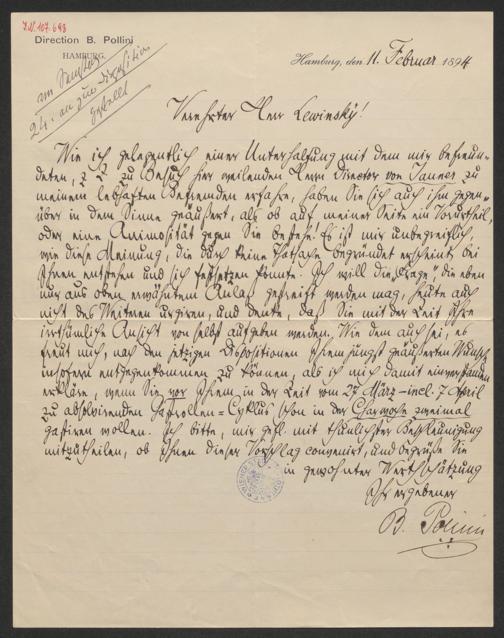 I.N. 107.698
Direction B. Pollini
HAMBURG.
Hamburg, den 11. Februar 1894
am Samstag
24. an zur Disposition
gestellt
Verehrter Herr Lewinsky!
Wie ich gelegentlich einer Unterhaltung mit dem mir befreun-
deten, z. Z. zu Besuch hier weilenden Herrn Director von Tauner zu
meinem lebhaften Befremden erfahre, haben Sie sich auch ihm gegen-
über in dem Sinne geäußert, als ob auf meiner Seite ein Vorurtheil,
oder eine Animosität gegen Sie bestehe! Es ist mir unbegreiflich,
wie diese Meinung, die durch keine Thatsache begründet erscheint, bei
Ihnen entstehen und sich festsetzen konnte. Ich will die Frage, die eben
nur aus oben erwähntem Anlaß gestreift werden mag, heute auch
nicht des Weiteren urgiren, und denke, daß Sie mit der Zeit Ihre
irrthümliche Ansicht von selbst aufgeben werden. Wie dem auch sei, es
freut mich, nach den jetzigen Dispositionen Ihrem jüngst geäußerten Wunsche
insofern entgegenkommen zu können, als ich mich damit einverstanden
erkläre, wenn Sie vor Ihrem in der Zeit vom 27. März – incl. 7. April
zu absolvirenden Gastrollen-Cyklus schon in der Charwoche zweimal
gastiren wollen. Ich bitte, mir gefl. mit thunlichster Beschleunigung
mitzutheilen, ob Ihnen dieser Vorschlag convenirt, und begrüße Sie
in gewohnter Werthschätzung
Ihr ergebener
B. Pollini